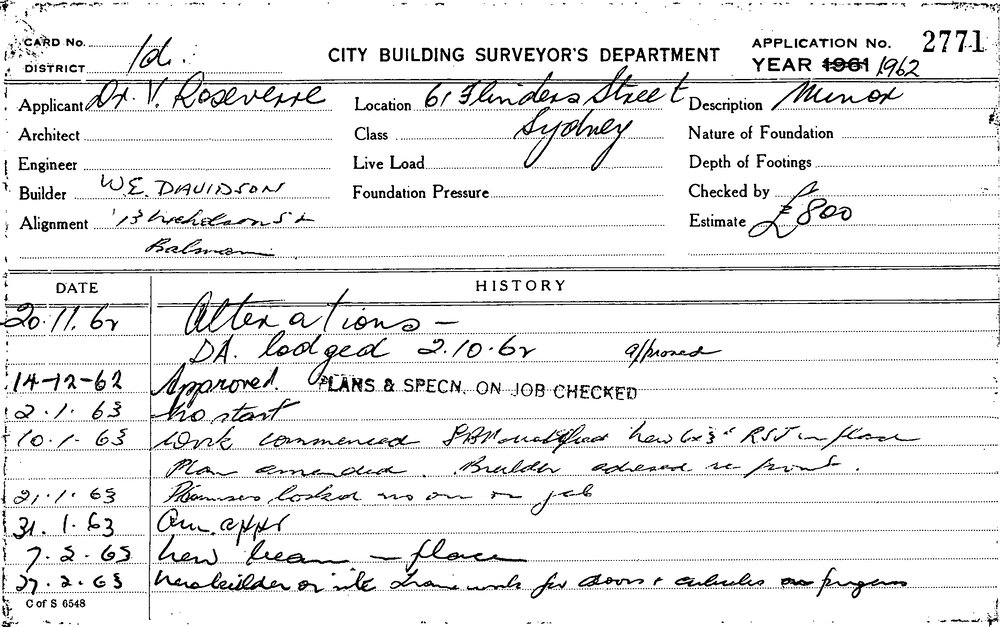 CARD No.
DISTRICT 1d.
CITY BUILDING SURVEYOR'S DEPARTMENT
APPLICATION No. 2771
YEAR 1961 1962
Applicant Dr. V. Roseverre
Location 61 Flinders Street
Sydney
Description Minor
Architect
Class
Nature of Foundation
Engineer
Live Load
Depth of Footings
Builder W.E. DAVIDSON
Foundation Pressure
Checked by
Alignment 13 Nicholson St
Balmain
Estimate £800
DATE
HISTORY
20.11.62 Alterations -
DA. lodged 2.10.62 approved
14-12-62 Approved. PLANS & SPECN. ON JOB CHECKED
2.1.63 No start
10.1.63 Work commenced new 6x3" RSJ in place
Plan amended. Builder advised re
21.1.63 Premises locked no one on job
31.1.63 Am. appr
7.2.63 New beam - place
27.2.63 New builder on site Frame work for doors + cubicles in progress
C of S 6548